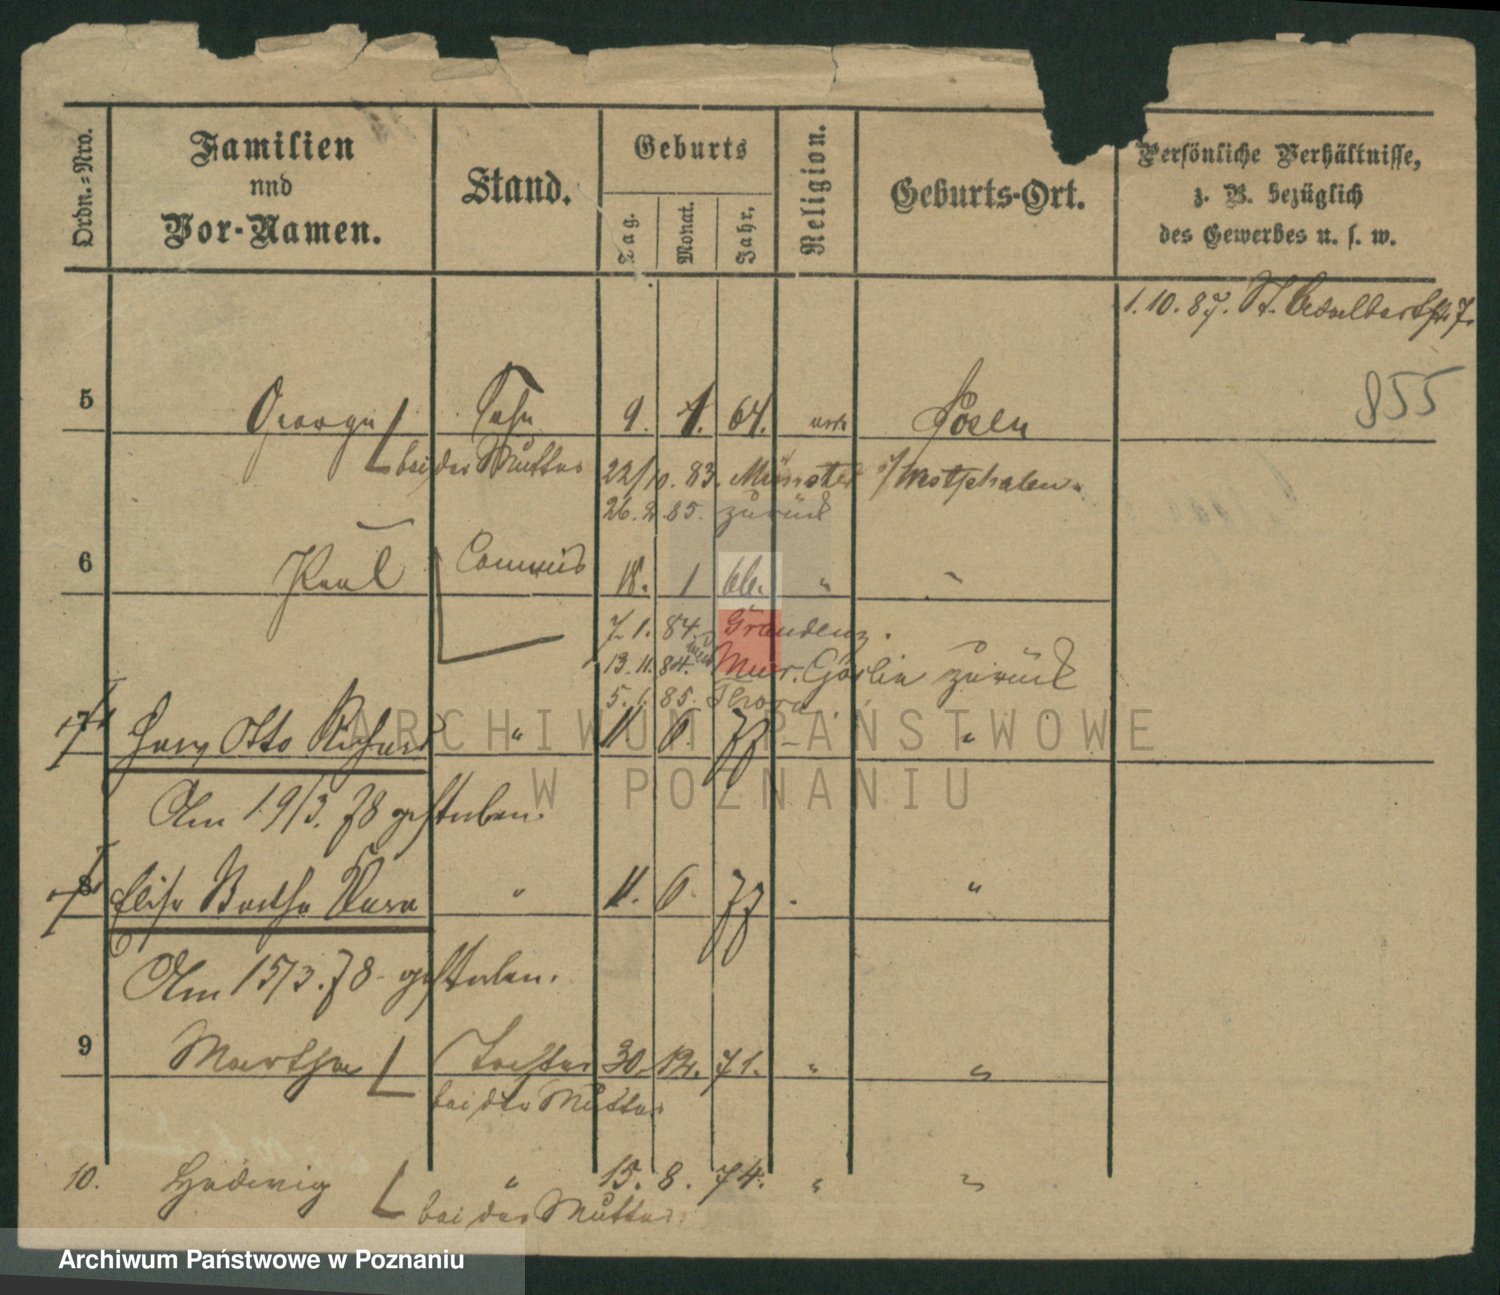 Ordn.=Nro.
Familien
und
Vor-Namen.
Stand.
Geburts
Tag.
Monat.
Jahr.
Religion.
Geburts-Ort.
Persönliche Verhältnisse,
z. B. bezüglich
des Gewerbes u. s. w.
1.10.87. St. Adalbertstr 7.
855
5 George Sohn 9. 1. 64. Posen
bei der Mutter 22/10. 83. Münster i/Westphalen.
26. 85. zurück
6 Paul Commis 18. 1 66. " "
7. 1. 84. Graudenz.
13. 11. 84. Mur. Goslin zurück
5. 1. 85. Thorn
7 Otto Richard " 11. 6. 77 "
Am 19/3. 78 gestorben.
8 Elise Bertha Clara " 11. 6. 77 "
Am 15/3. 78 gestorben.
9 Martha Tochter 30. 12. 71. " "
bei der Mutter
10. Hedwig " 15. 8. 74. " "
bei der Mutter
ARCHIWUM PAŃSTWOWE
W POZNANIU
Archiwum Państwowe w Poznaniu